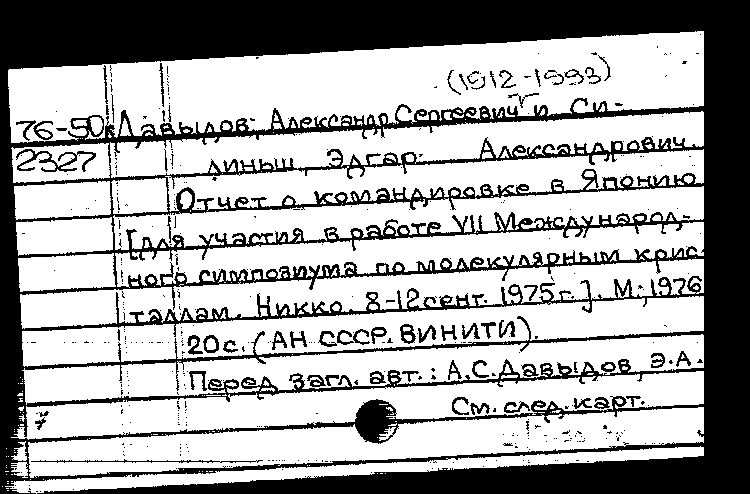 (1912-1993)
76-50 Давыдов, Александр Сергеевич и Си-
2327 линьш, Эдгар Александрович.
Отчет о командировке в Японию
[для участия в работе VII Международ-
ного симпозиума по молекулярным крис-
таллам. Никко. 8-12 сент. 1975 г.]. М., 1976
20 с. (АН СССР. ВИНИТИ).
Перед загл. авт.: А.С. Давыдов, Э.А.
См. след. карт.
7